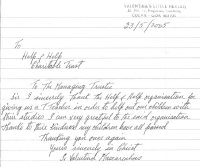 23/5/2025
To
Help & Help
Charitable Trust
To The Managing Trustee
Sir I sincerely thank the Help & Help organisation for
giving us a Teacher in order to help out our children with
their studies I am very greatful to the said organisation
thanks to their kindness my children have all passed
Thanking you once again
Yours sincerely in Christ